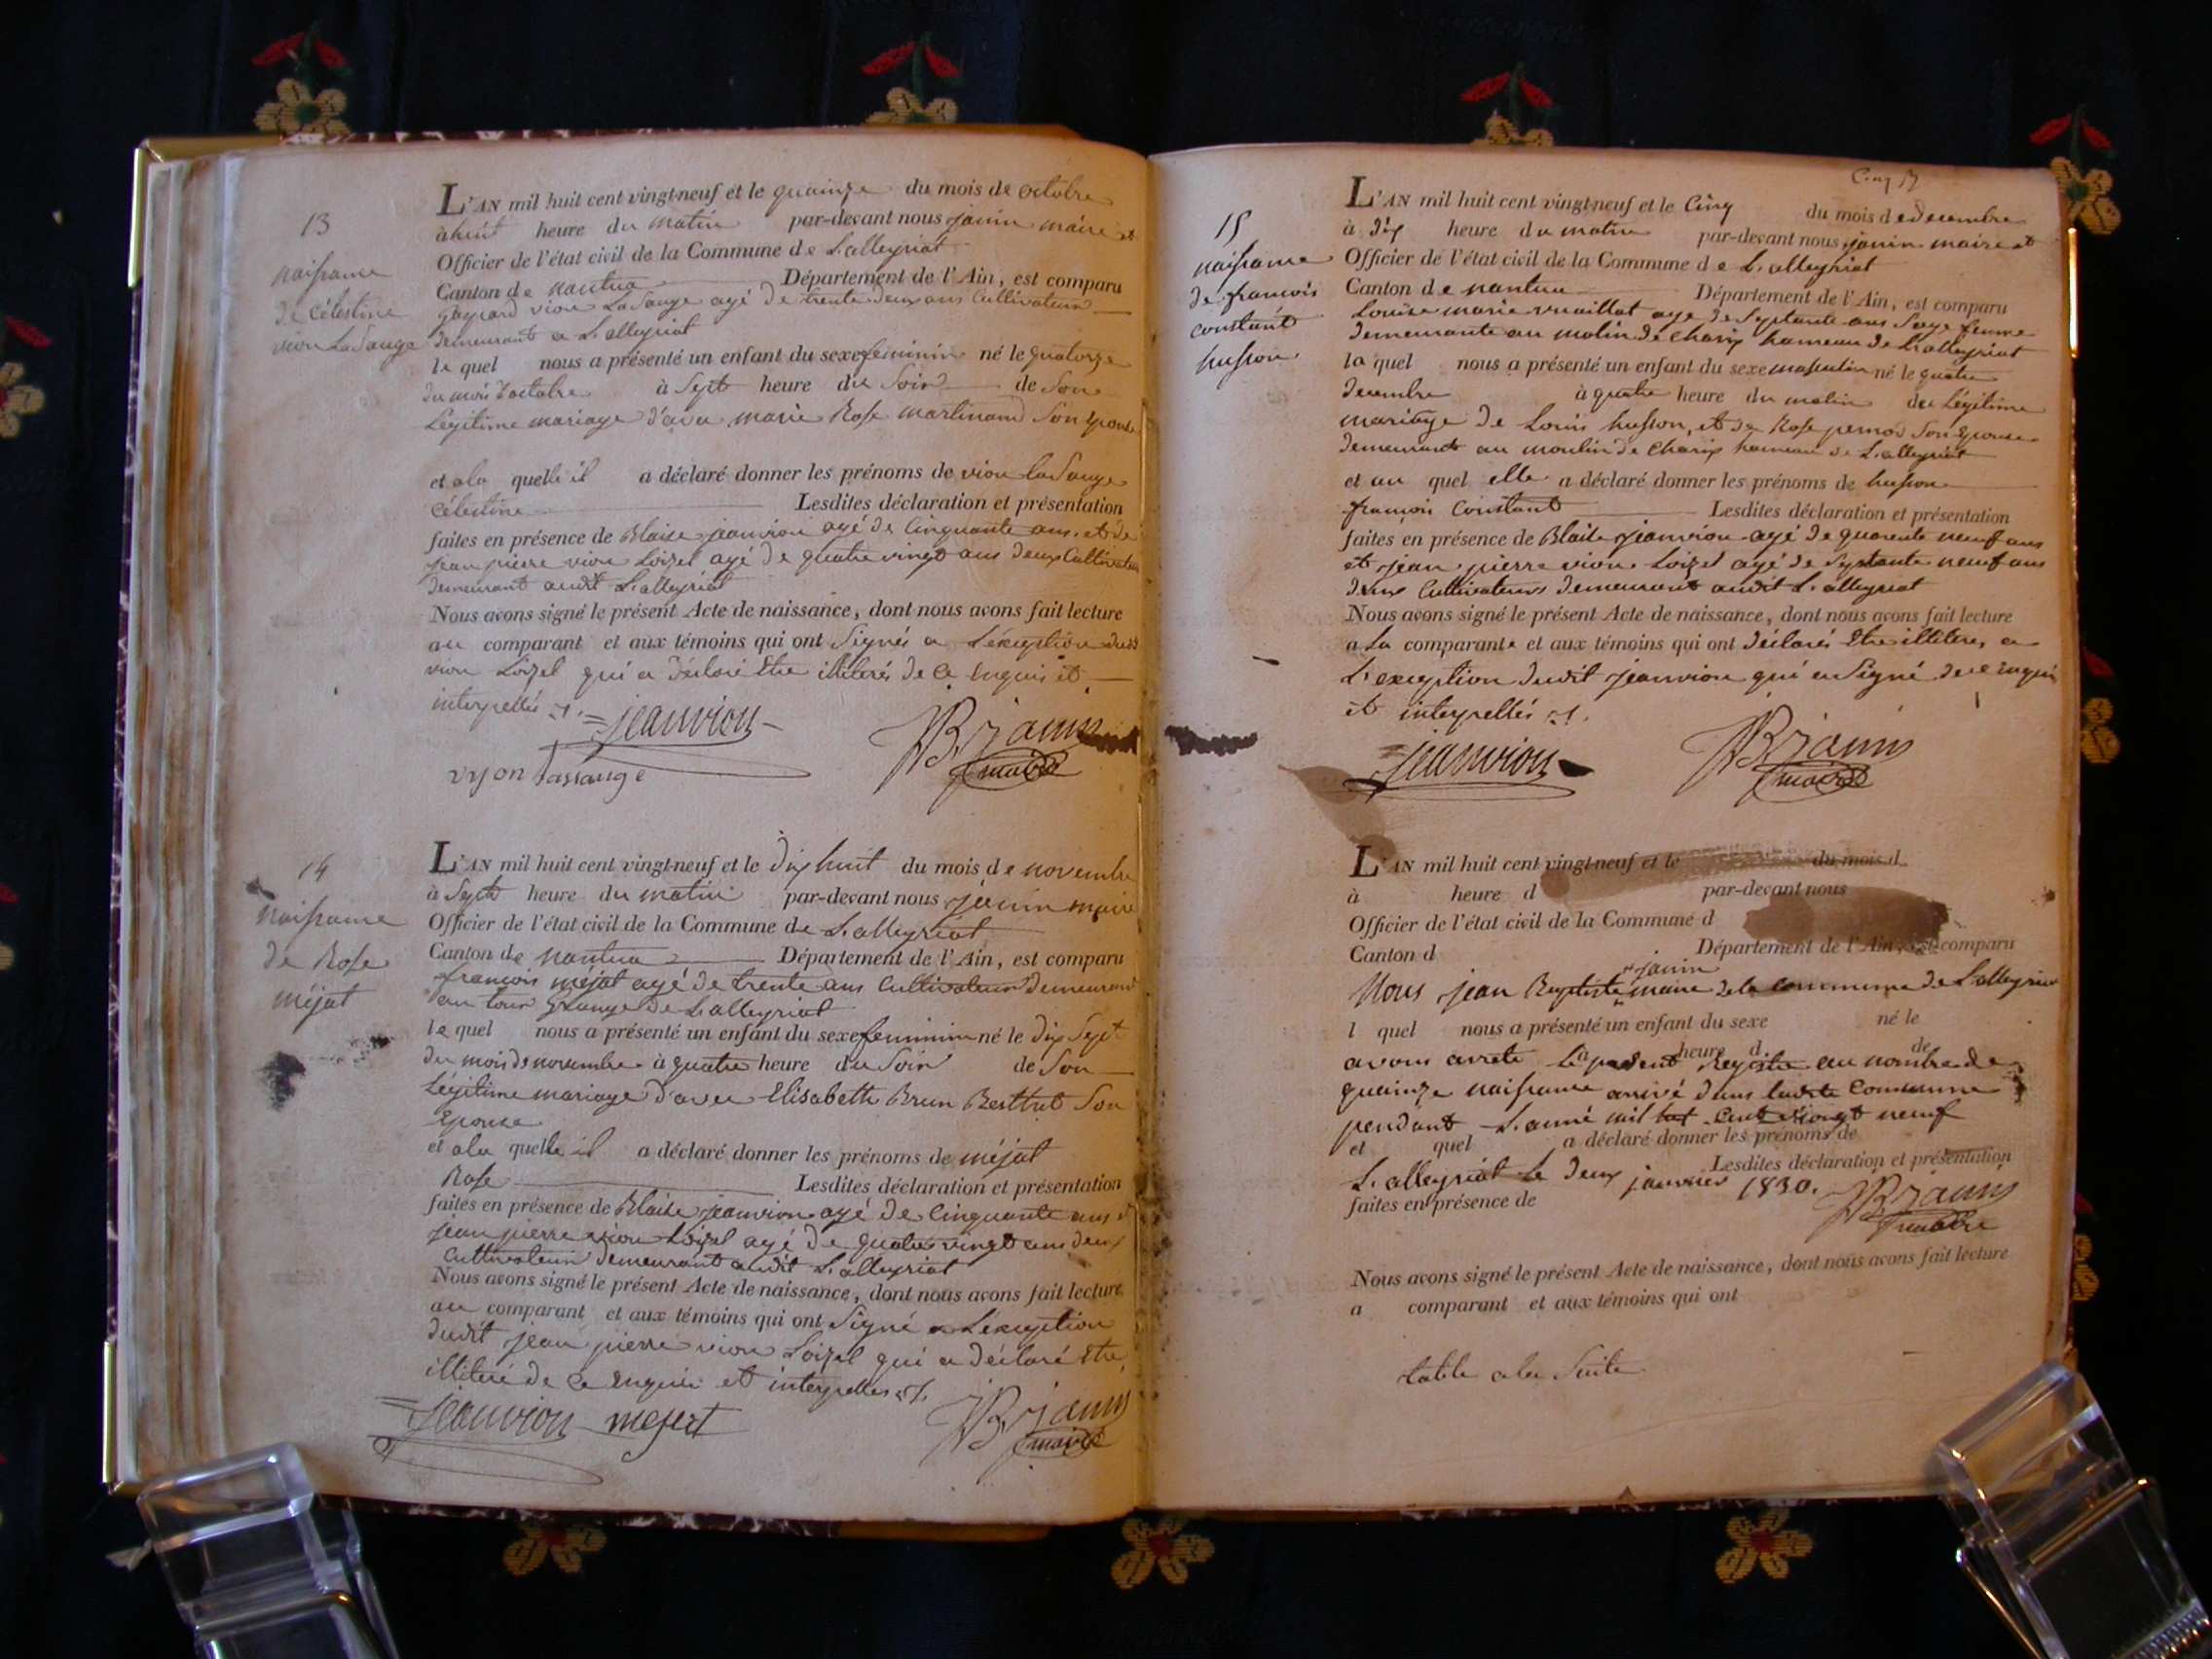 13
naissance
de célestine
vion LaSauge
L'AN mil huit cent vingt-neuf et le quainze du mois de octobre
à huit heure du matin par-devant nous janin maire et
Officier de l'état civil de la Commune de L'alleyriat
Canton de nantua Département de l'Ain, est comparu
gaspard vion LaSauge agé de trente deux ans Cultivateur
demeurant a L'alleyriat
le quel nous a présenté un enfant du sexe feminin né le quatorze
du mois d'octobre à Sept heure du Soir de Son
Légitime mariage d'avec marie Rose martinand Son Epouse
et a la quelle il a déclaré donner les prénoms de vion laSauge
célestine Lesdites déclaration et présentation
faites en présence de Blaise jeanvion agé de Cinquante ans et de
jean pierre vion Loizel agé de quatre vingt ans deux Cultivateurs
demeurant audit L'alleyriat
Nous avons signé le présent Acte de naissance, dont nous avons fait lecture
au comparant et aux témoins qui ont Signés a L'éxception dudit
vion Loizel qui a déclaré Etre illiterés de ce enquis et
interpellés
jeanvion JB janin
maire
vyon lassauge
14
naissance
de Rose
méjat
L'AN mil huit cent vingt-neuf et le dix huit du mois de novembre
à Sept heure du matin par-devant nous janin maire
Officier de l'état civil de la Commune de L'alleyriat
Canton de nantua Département de l'Ain, est comparu
françois méjat agé de trente ans Cultivateur demeurant
au tour grange de L'alleyriat
le quel nous a présenté un enfant du sexe feminin né le dix Sept
du mois de novembre à quatre heure du Soir de Son
Légitime mariage d'avec Elisabeth Brun Berthet Son
Epouse
et a la quelle il a déclaré donner les prénoms de méjat
Rose Lesdites déclaration et présentation
faites en présence de Blaise jeanvion agé de Cinquante ans et
jean pierre vion Loizel agé de quatre vingt ans deux
Cultivateur demeurant audit L'alleyriat
Nous avons signé le présent Acte de naissance, dont nous avons fait lecture
au comparant et aux témoins qui ont Signé a L'éxception
dudit jean pierre vion Loizel qui a déclaré Etre
illiteré de ce enquis et interpelles
jeanvion mejat JB janin
maire
15
naissance
de francois
constant
husson
L'AN mil huit cent vingt-neuf et le Cinq du mois de decembre
à dix heure du matin par-devant nous janin maire et
Officier de l'état civil de la Commune de L'alleyriat
Canton de nantua Département de l'Ain, est comparu
Louise marie vuaillat age de Septante ans Sage femme
demeurante au molin de Charix hameau de L'alleyriat
la quel nous a présenté un enfant du sexe masculin né le quatre
decembre à quatre heure du matin du Légitime
mariage de Louis husson, et de Rose pernod Son Epouse
demeurant au moulin de Charix hameau de L'alleyriat
et au quel elle a déclaré donner les prénoms de husson
francois Constant Lesdites déclaration et présentation
faites en présence de Blaise jeanvion agé de quarente neuf ans
et jean pierre vion Loizel agé de Septante neuf ans
deux Cultivateurs demeurant audit L'alleyriat
Nous avons signé le présent Acte de naissance, dont nous avons fait lecture
a La comparante et aux témoins qui ont déclarés Etre illiteres, a
L'exception dudit jeanvion qui a Signé de ce enquis
et interpellés
jeanvion JB janin
maire
L'AN mil huit cent vingt-neuf et le du mois d
à heure d par-devant nous
Officier de l'état civil de la Commune d
Canton d Département de l'Ain, est comparu
janin
Nous jean Baptiste maire de la commune de L'alleyriat
l quel nous a présenté un enfant du sexe né le
à heure d de
avons arreté Le present Registre au nombre de
quainze naissance arrivé dans ladite Commune
pendant L'anné mil huit Cent vingt neuf
et quel a déclaré donner les prénoms de
Lesdites déclaration et présentation
L'alleyriat Le deux janvier 1830.
faites en présence de
JB janin
maire
Nous avons signé le présent Acte de naissance, dont nous avons fait lecture
a comparant et aux témoins qui ont
table a la Suite